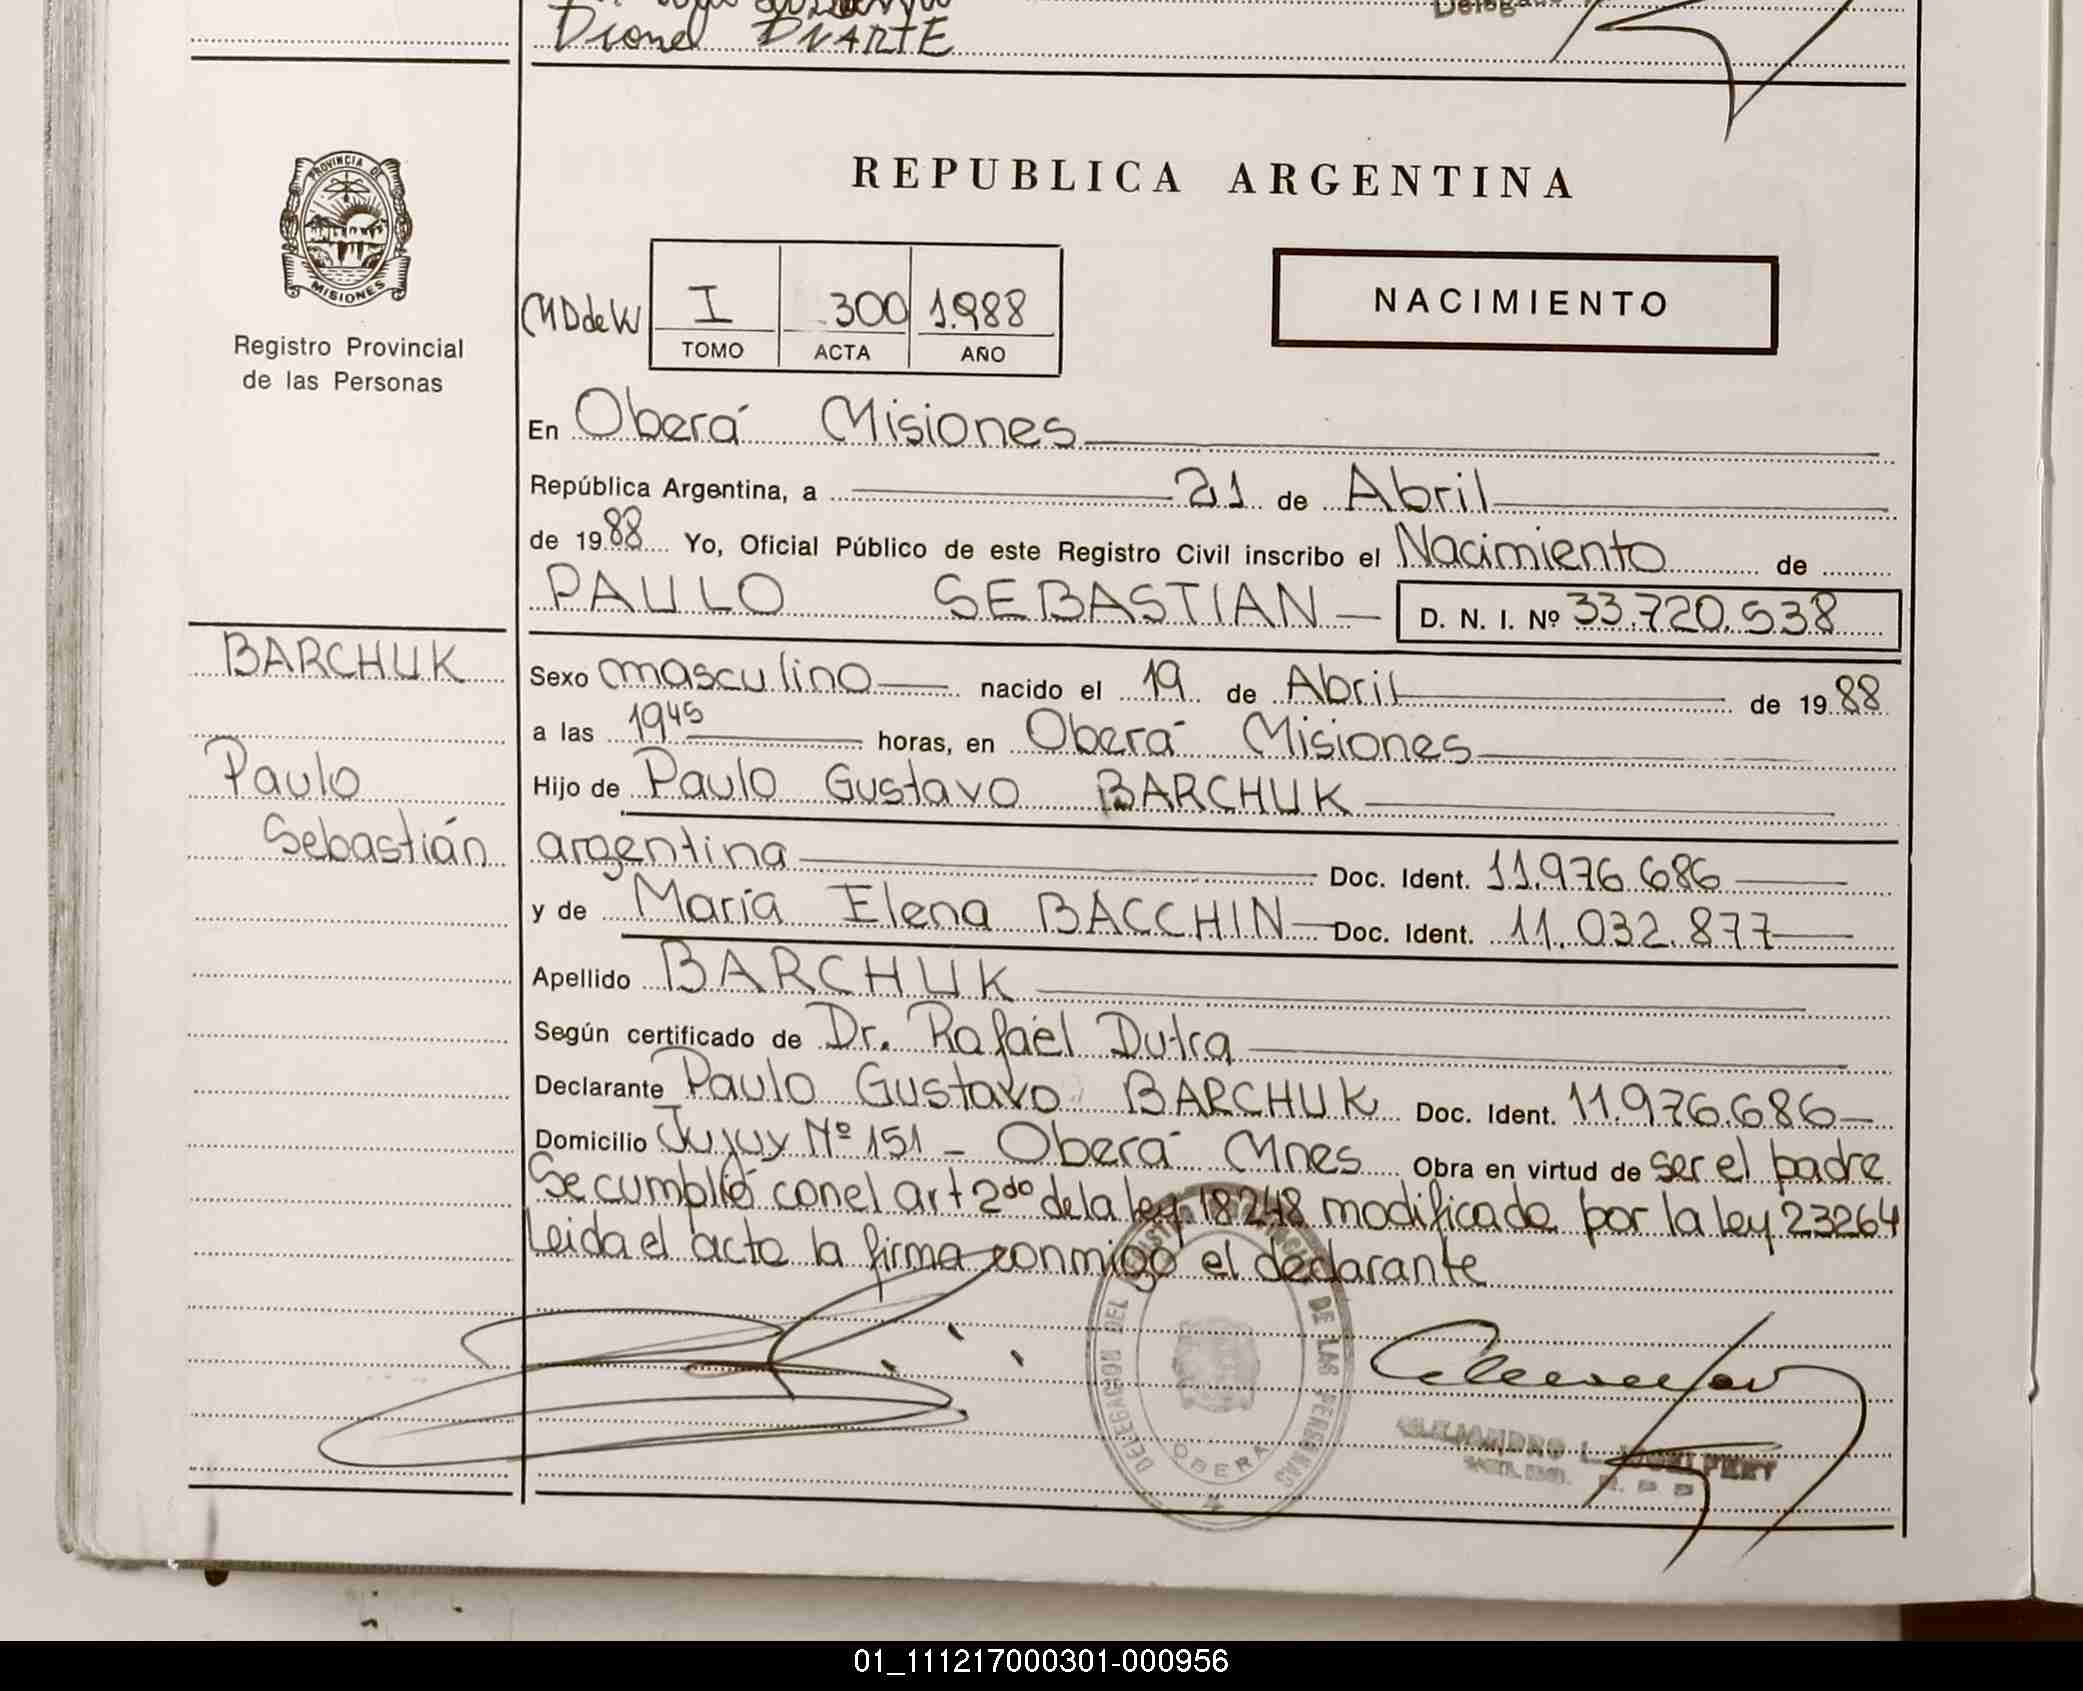 Dionel DUARTE
Delega
PROVINCIA DE
MISIONES
Registro Provincial
de las Personas
REPUBLICA ARGENTINA
MDdeW
I 300 1.988
TOMO ACTA AÑO
NACIMIENTO
En Oberá Misiones
República Argentina, a 21 de Abril
de 1988 Yo, Oficial Público de este Registro Civil inscribo el Nacimiento de
PAULO SEBASTIAN D. N. I. Nº 33.720.538
BARCHUK
Paulo
Sebastián
Sexo masculino nacido el 19 de Abril de 1988
a las 19⁴⁵ horas, en Oberá Misiones
Hijo de Paulo Gustavo BARCHUK
argentina Doc. Ident. 11.976.686
y de María Elena BACCHIN Doc. Ident. 11.032.877
Apellido BARCHUK
Según certificado de Dr. Rafael Dutra
Declarante Paulo Gustavo BARCHUK Doc. Ident. 11.976.686
Domicilio Jujuy Nº 151 - Oberá Mnes Obra en virtud de ser el padre
Se cumplió con el art 2do de la ley 18248 modificada por la ley 23264
Leida el acta la firma conmigo el declarante
DELEGACION DEL REGISTRO PROVINCIAL DE LAS PERSONAS
OBERA
ALEJANDRO L.
R. P. P.
01_111217000301-000956